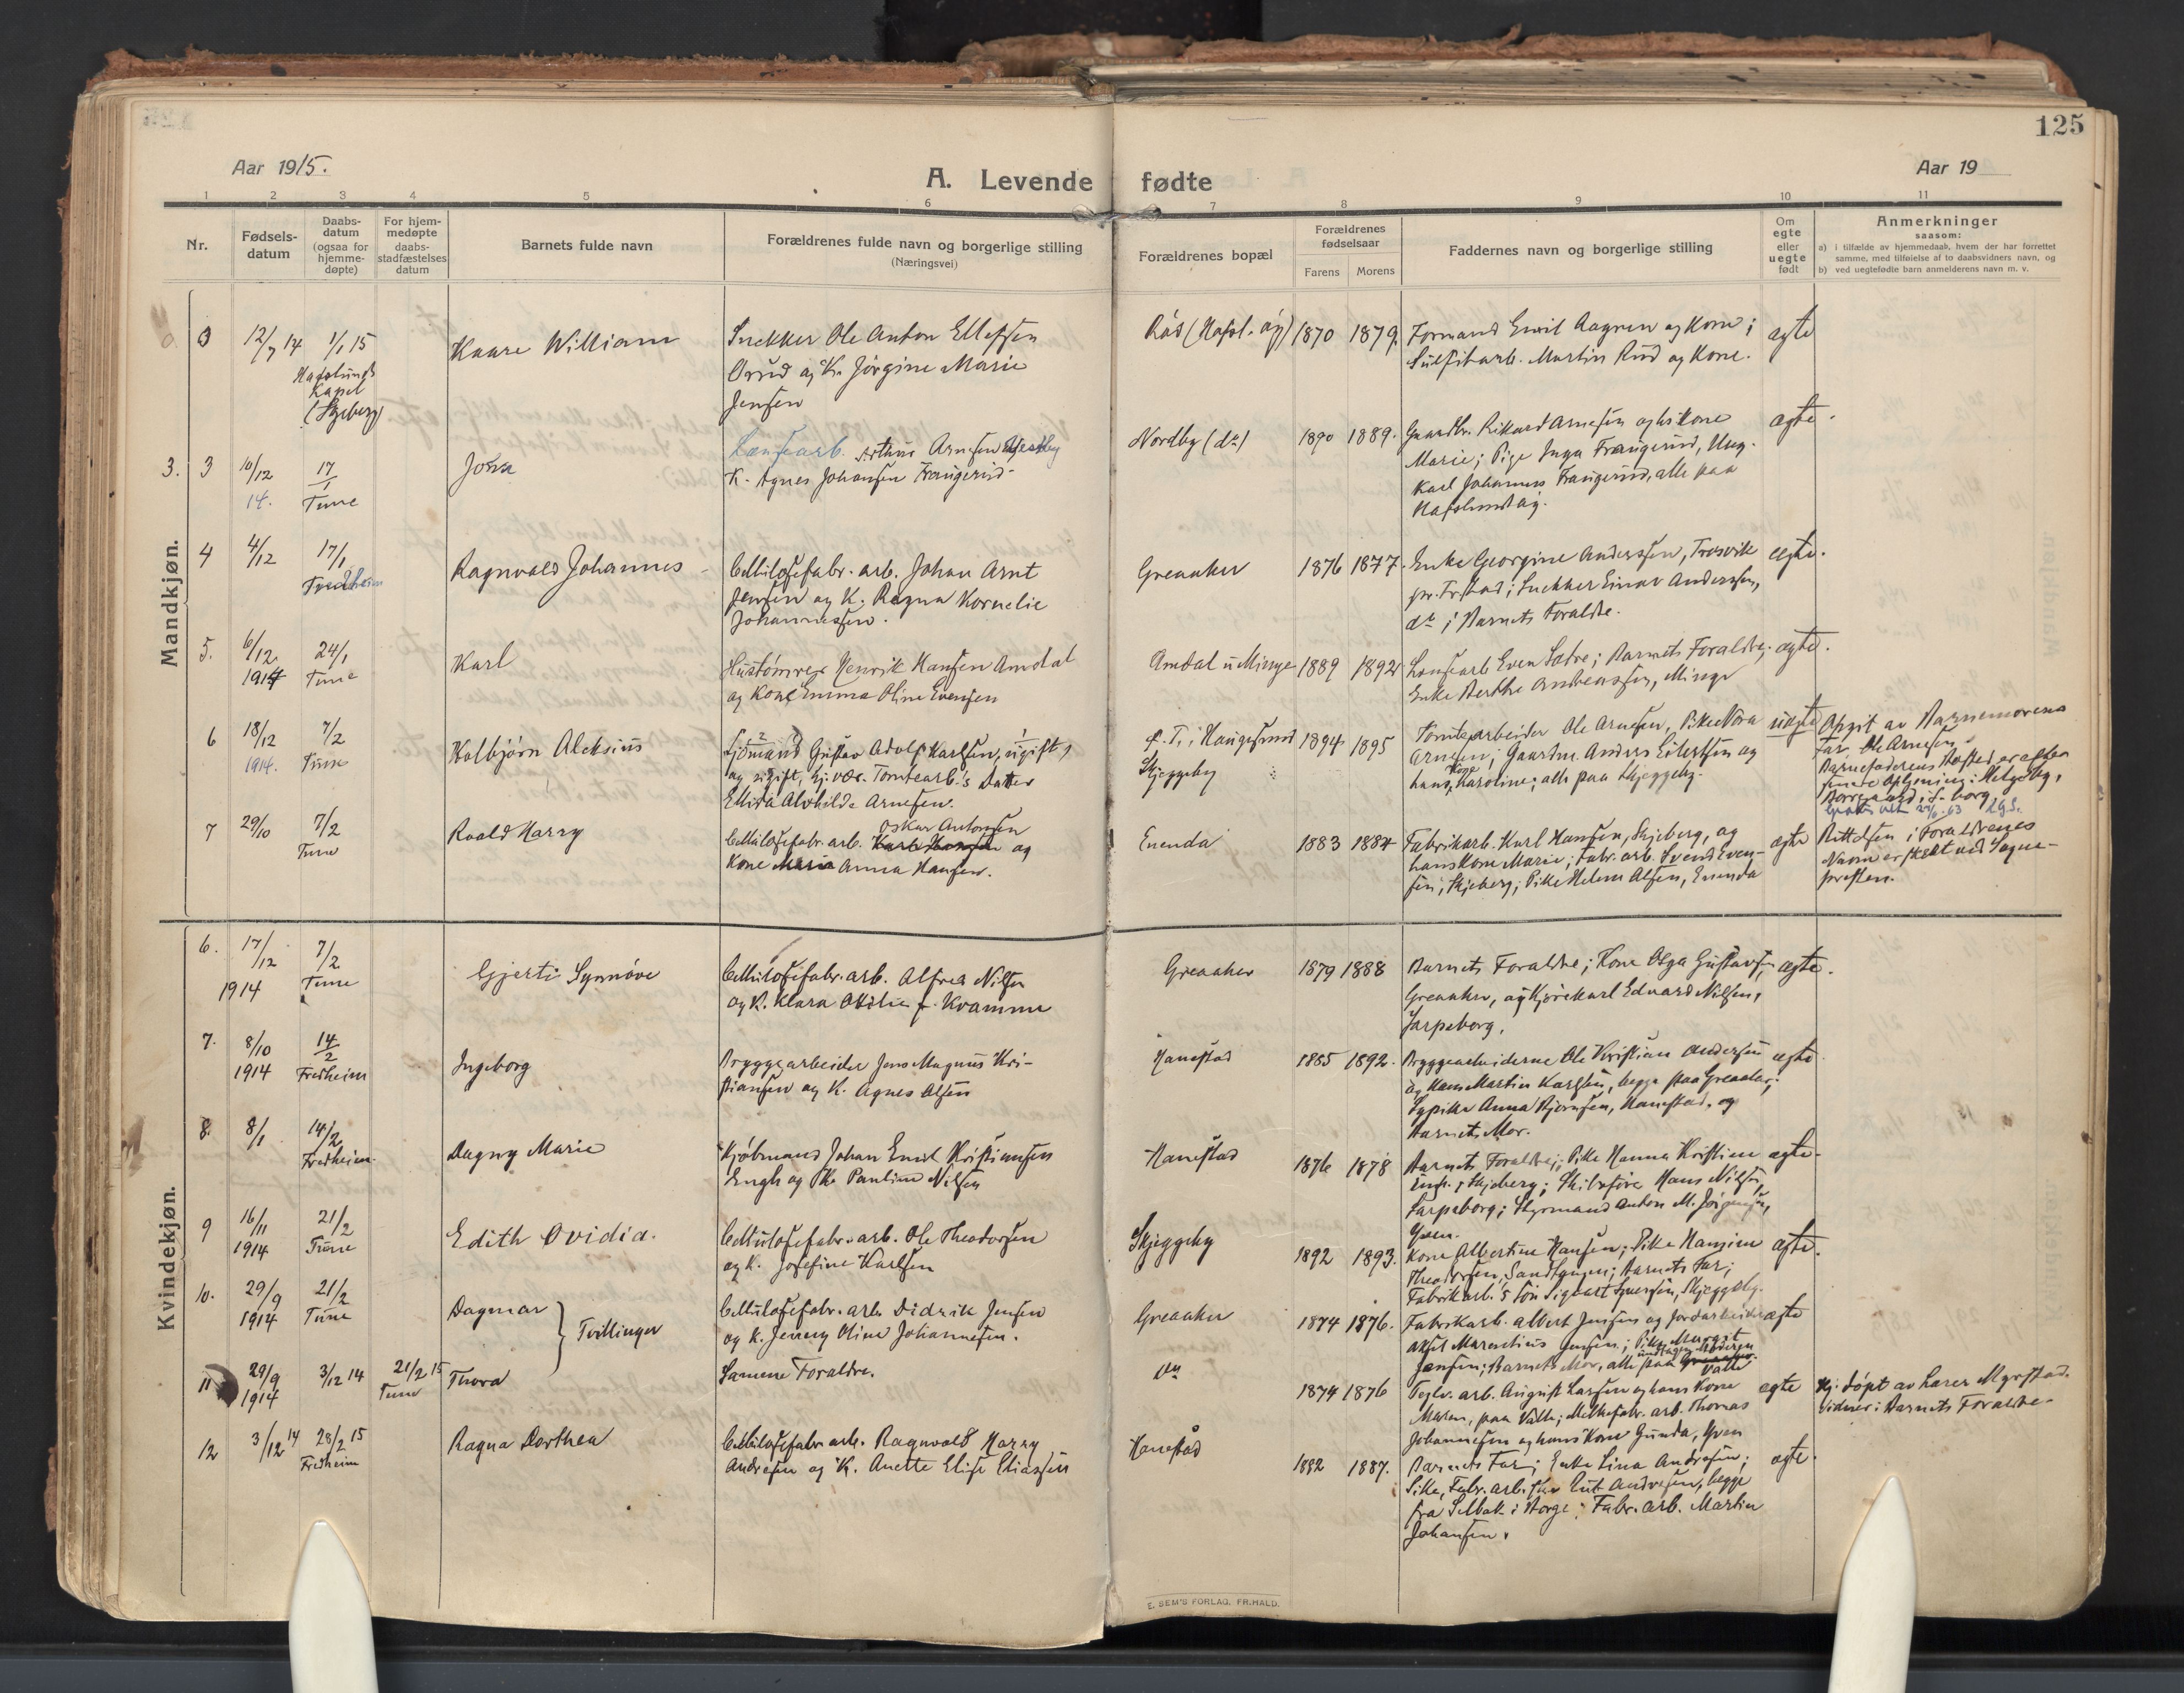 125
Aar 1915.
A. Levende fødte
Aar 19
1 2 3 4 5 6 7 8 9 10 11
Nr.
Fødsels-
datum
Daabs-
datum
(ogsaa for
hjemme-
døpte)
For hjem-
medøpte
daabs-
stadfæstelses
datum
Barnets fulde navn
Forældrenes fulde navn og borgerlige stilling
(Næringsvei)
Forældrenes bopæl
Forældrenes
fødselsaar
Farens Morens
Faddernes navn og borgerlige stilling
Om
egte
eller
uegte
født
Anmerkninger
saasom:
a) i tilfælde av hjemmedaab, hvem der har forrettet
samme, med tilføielse af to daabsvidners navn, og
b) ved uegtefødte barn anmelderens navn m. v.
Mandkjøn.
12/7 14 1/1 15
Hafslunds
Kapel
(Skjeberg)
Kaare William
Snekker Ole Anton Ellefsen
Orud og K. Jørgine Marie
Jensen
1870 1879.
Formand Emil Aagren og Kone;
Sulfitarb. Martin Rud og Kone.
egte
3. 3 10/12
14.
17/1
Tune
Lænsearb. Arthur Arnesen
K. Agnes Johansen Frangerud
Nordby (do)
1890 1889.
Gaardbr. Rikard Arnesen og hs kone
Marie; Pige Inga Frangerud, Ung.
Karl Johannes Frangerud, alle paa
egte.
4 4/12 17/1
Fredheim
Ragnvald Johannes
Cellulosefabr. arb. Johan Arnt
Jensen og K. Ragna Kornelie
Johannessen.
Greaaker
1876 1877.
Enke Georgine Anderssen, Trosvik
pr. Fr.stad; Snekker Einar Anderssen,
do; Barnets Forældre.
egte.
5. 6/12
1914
24/1
Tune
Karl
Hustømrer Henrik Hansen Amdal
og Kone Emma Oline Evensen
Amdal u Minge
1889 1892
Lensearb Even Sætre; Barnets Forældre;
Enke Berthe Andreassen, Minge
egte.
6 18/12
1914.
7/2
Tune
Kolbjørn Aleksius
Sjømand Gustav Adolf Karlsen, ugift,
og ugift, hj.vær. Tomtearb's Datter
Ellida Alvhilda Arnesen.
Skjeggeby
1894 1895
Tomtearbeider Ole Arnesen, Pike Nora
Arnesen; Gaardm. Anders Eilertsen og
hans Kone Karoline; alle paa Skjeggeby.
uegte
Opgit av Barnemorens
Far, Ole Arnesen.
7 29/10 7/2
Tune
Roald Harry
Oskar Antonsen
Cellulosefabr. arb. Karl Hansen og
Kone Maria Anna Hansen.
Enenda
1883 1884
Fabrikarb. Karl Hansen, Skjeberg, og
hans Kone Marie; Fabr. arb. Svend Even-
sen, Skjeberg; Pike Helene Olsen, Enenda
egte
Rettelsen i Forældrenes
Navn er skeet ved Sogne-
presten.
Kvindekjøn.
6. 17/12
1914
7/2
Tune
Gjerti Synnøve
Cellulosefabr. arb. Alfred Nilsen
og K. Klara Otilie f. Kvamme
Greaaker
1879 1888
Barnets Forældre; Kone Olga Gustavsen,
Greaaker, og Kjørekarl Edvard Nilsen,
Sarpsborg.
egte.
7. 8/10
1914
14/2
Fredheim
Ingeborg
Bryggearbeider Jens Magnus Kri-
stiansen og K. Agnes Olsen
Hanestad
1885 1892.
Bryggearbeiderne Ole Kristian Andersen
og Hans Martin Karlsen, begge paa Greaaker;
Sypike Anna Bjørnsen, Hanestad, og
Barnets Mor.
egte
8. 8/1 14/2
Fredheim.
Dagny Marie
Kjøbmand Johan Emil Kristiansen
Engh og K. Pauline Nilsen
Hanestad
1876 1878
Barnets Forældre; Pike Hanna Kristine
Engh, Skjeberg; Skibsfører Hans Nilsen,
Sarpsborg; Styrmand Anton M. Jørgensen,
Yven.
egte.
9 16/11
1914
21/2
Tune
Edith Ovidia.
Cellulosefabr. arb. Ole Theodorsen
og K. Josefine Karlsen
Skjeggeby
1892 1893.
Kone Albertine Hansen; Pike Hansine
Theodorsen, Sandtangen; Barnets Far;
Fabrikarb.'s Søn Sigvart Syversen, Skjeggeby.
egte.
10. 29/9
1914
21/2
Tune
Dagmar } Tvillinger
Cellulosefabr. arb. Didrik Jensen
og K. Jenny Oline Johannesen.
Greaaker
1874 1876.
Fabrikarb. Albert Jensen og Jordarbeider
Aksel Marentius Jensen; Pike Margit
Jensen; Barnets Mor, alle paa Greaaker
Valle
egte
11 29/9
1914
3/12 14
21/2 15
Tune
Thora
Samme Forældre.
do
1874 1876
Teglv. arb. August Larsen og hans Kone
Maren, paa Valle; Melkefabr. arb. Thomas
Johannesen og hans Kone Gunda, Yven
egte
Hj. døpt av Lærer Myrstad.
Vidner: Barnets Forældre
12 3/12 14 28/2 15
Fredheim
Ragna Dorthea
Cellulosefabr. arb. Ragnvald Harry
Andresen og K. Anette Elise Eliassen
Hanestad
1882 1887.
Barnets Far; Enke Lina Andresen;
Pike, Fabr. arb.ske Rut Andresen, begge
fra Selbak i Borge; Fabr. arb. Martin
Johansen.
egte.
E. SEM'S FORLAG, FR.HALD.